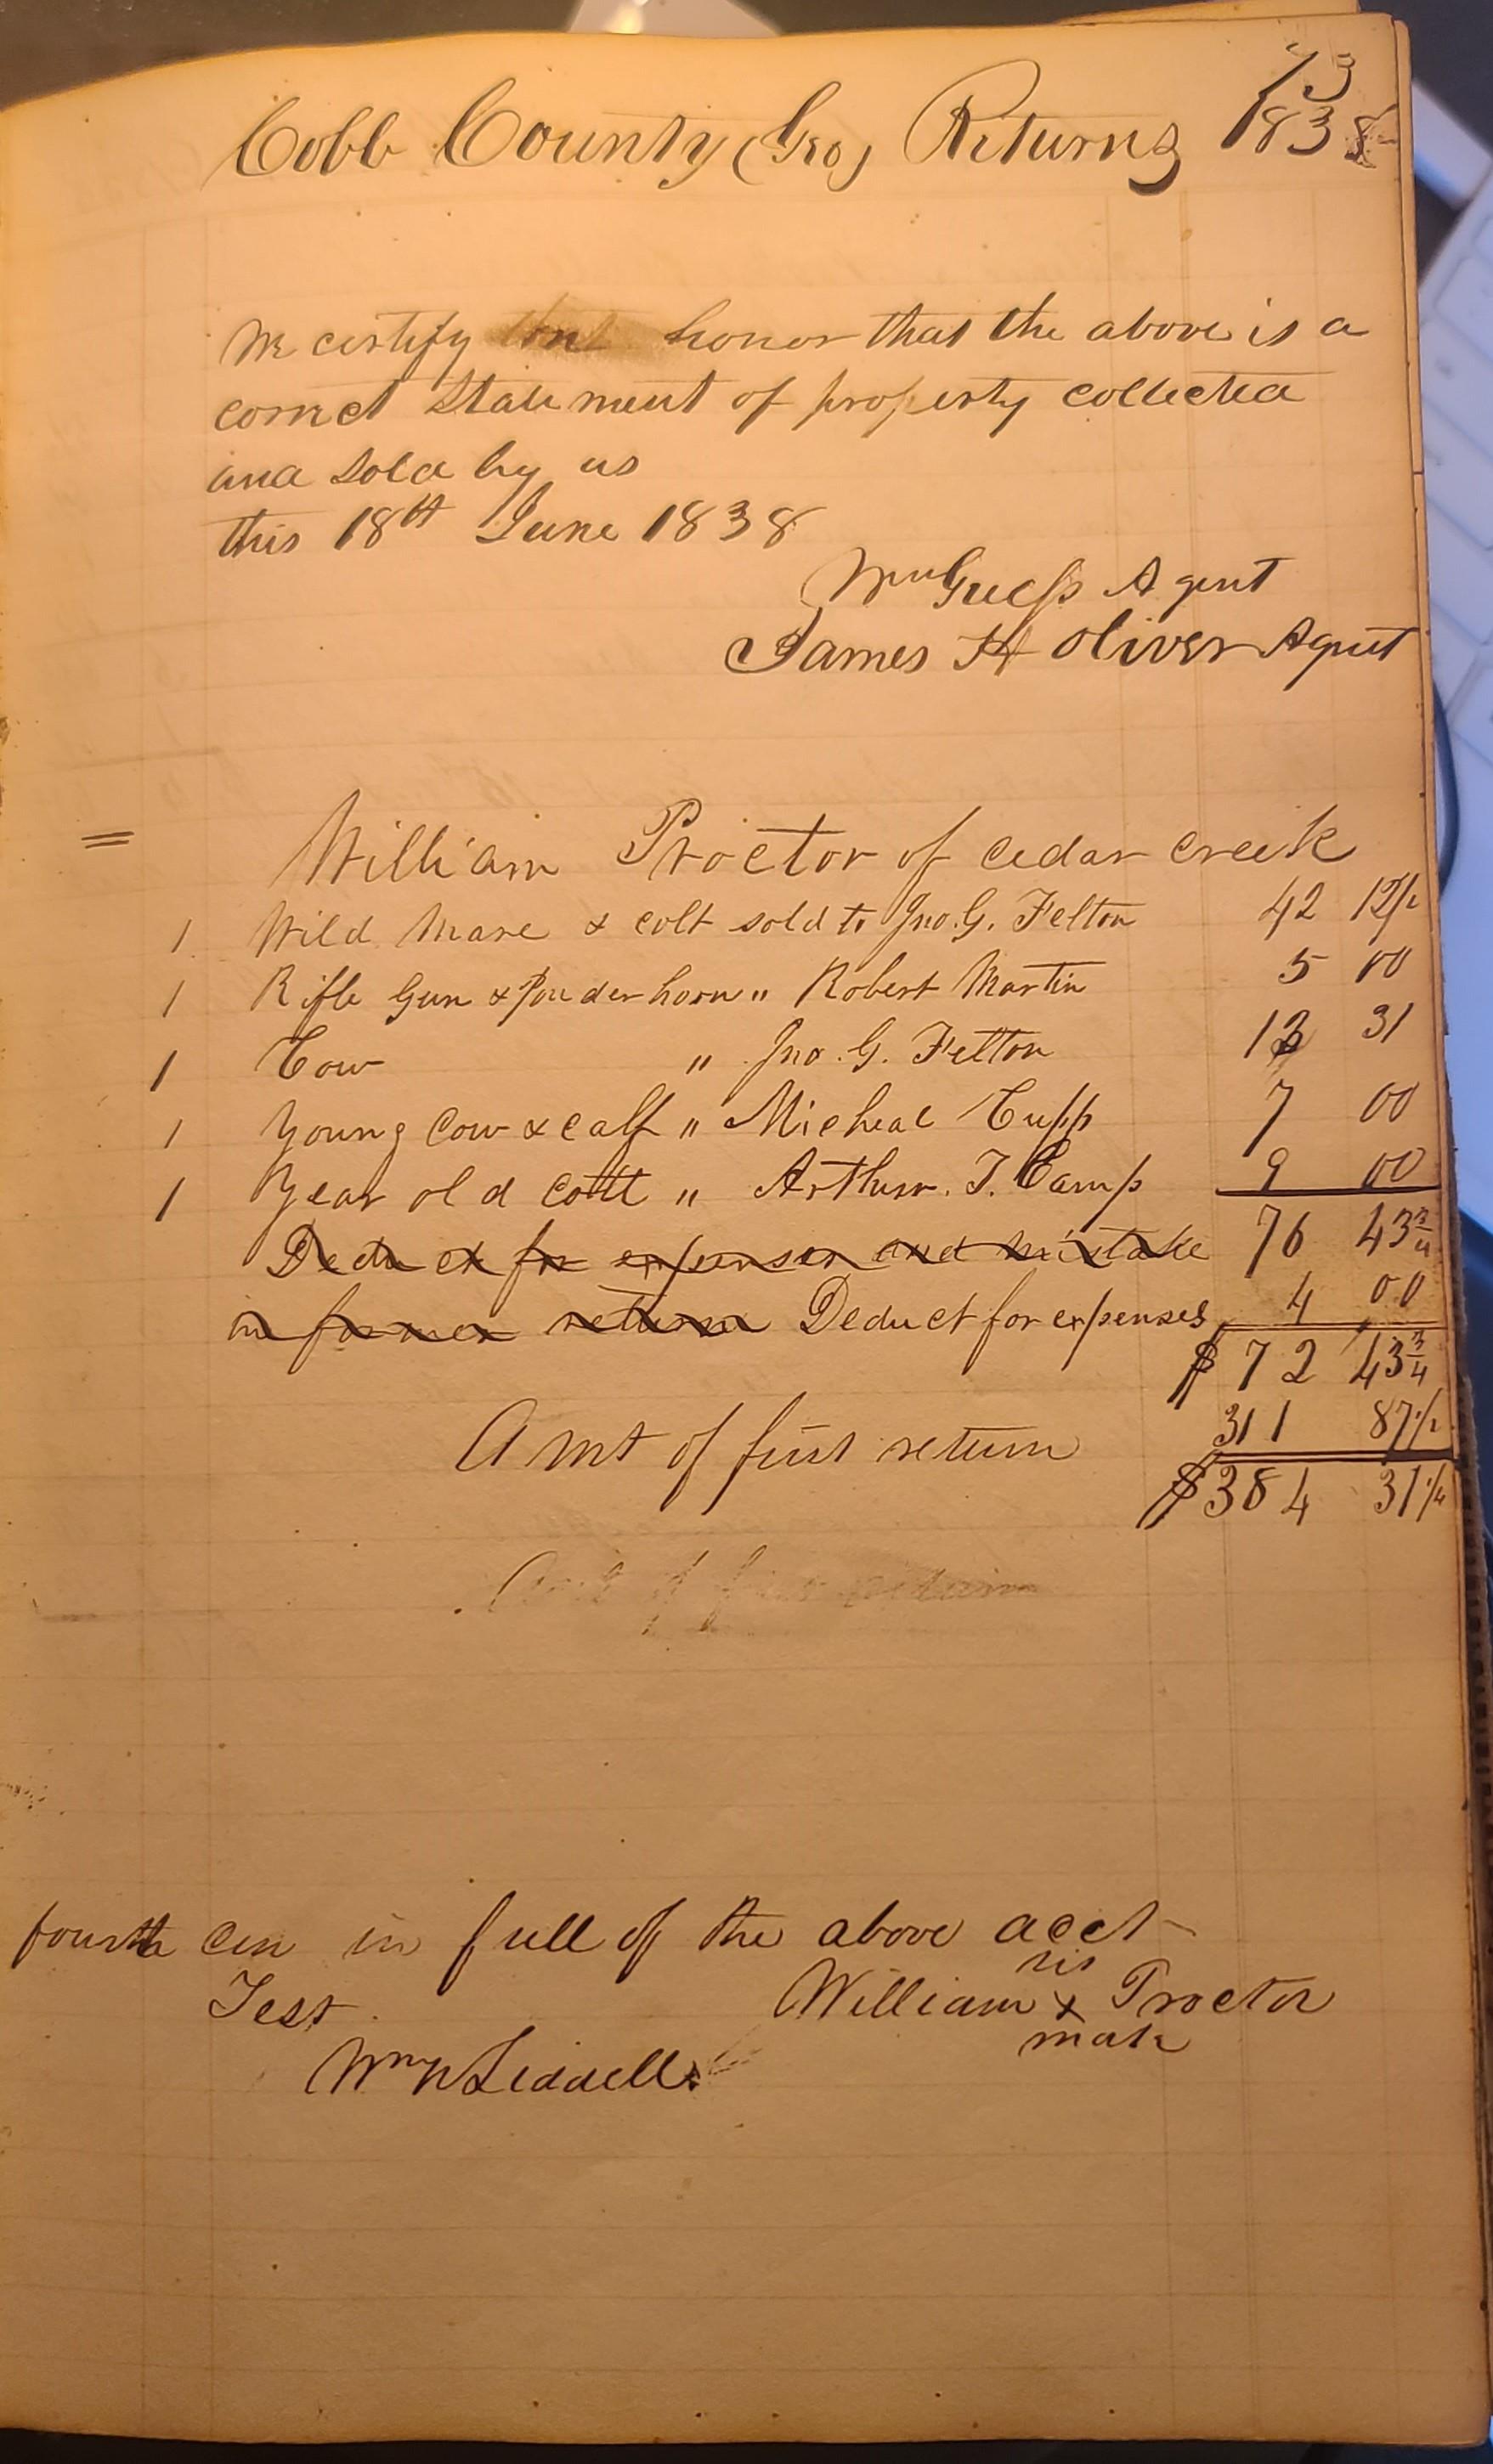 73
Cobb County (Geo) Returns 1838
We certify on honor that the above is a
correct Statement of property collected
and Sold by us
this 18th June 1838
Wm Guess Agent
James H Oliver Agent
= William Proctor of cedar creek
1 Wild Mare & colt sold to Jno. G. Felton 42 12 1/2
1 Rifle Gun & Pouder horn " Robert Martin 5 00
1 Cow " Jno. G. Felton 13 31
1 Young Cow & calf " Micheal Cupp 7 00
1 Year old Coltt " Arthur. T. Camp 9 00
Deduct for expenses and mistake 76 43 3/4
in former return Deduct for expenses 4 00
$ 72 43 3/4
Amt of first return 311 87 1/2
$ 384 31 1/4
Amt of first return
in full of the above acct
his
Test William x Proctor
mark
Wm N Liddell